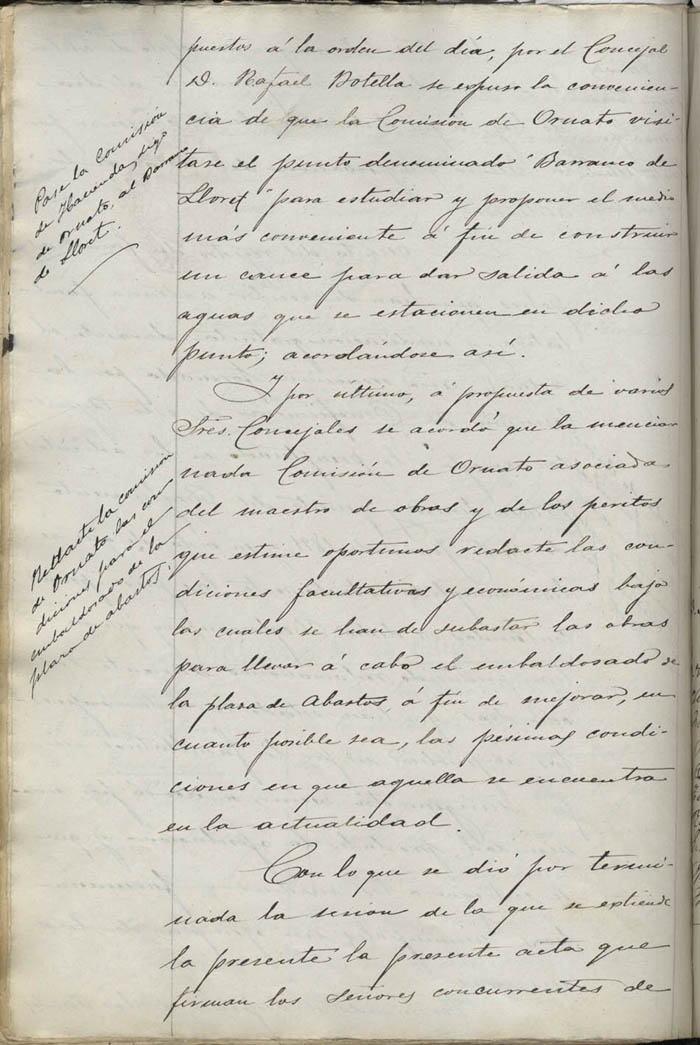 puestos á la orden del día, por el Concejal
D. Rafael Botella se expuso la convenien-
cia de que la Comisión de Ornato visi-
tase el punto denominado "Barranco de
Lloret" para estudiar y proponer el medio
más conveniente á fin de construir
un cauce para dar salida á las
aguas que se estacionen en dicho
punto; acordándose así.
Y por último, á propuesta de varios
Sres. Concejales se acordó que la mencio-
nada Comisión de Ornato asociada
del maestro de obras y de los peritos
que estime oportunos redacte las con-
diciones facultativas y económicas bajo
las cuales se han de subastar las obras
para llevar á cabo el embaldosado de
la plaza de Abastos, á fin de mejorar, en
cuanto posible sea, las pésimas condi-
ciones en que aquella se encuentra
en la actualidad.
Con lo que se dió por termi-
nada la sesion de la que se extiende
la presente la presente acta que
firman los señores concurrentes de
Pase la Comisión
de Hacienda, digo
de Ornato, al Barranco
de Lloret.
Redacte la comisión
de Ornato las con-
diciones para el
embaldosado de la
plaza de abastos.